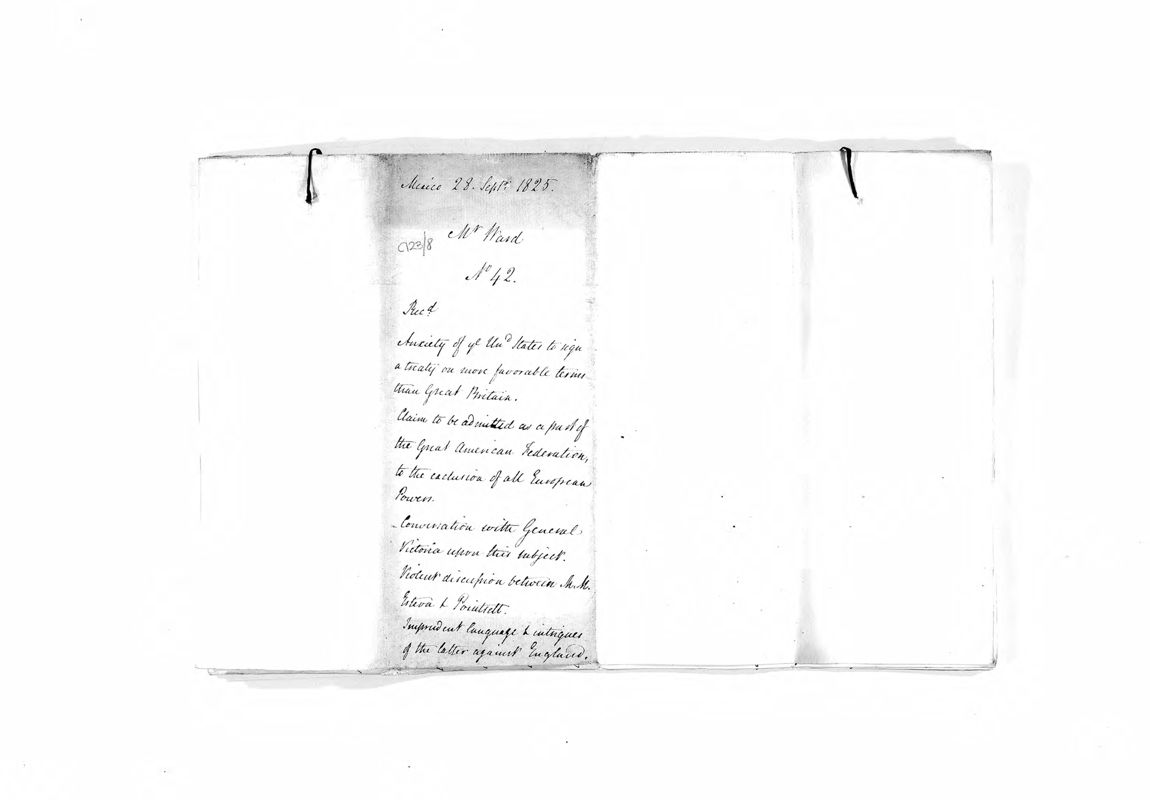 Mexico 28. Septr. 1825.
Mr Ward
No 42.
Recd
Anxiety of ye Und States to sign
a treaty on more favorable terms
than Great Britain.
Claim to be admitted as a part of
the Great American Federation,
to the exclusion of all European
Powers.
Conversation with General
Victoria upon this subject.
Violent discussion between M.M.
Esteva & Poinsett.
Imprudent language & intrigues
of the latter against England.